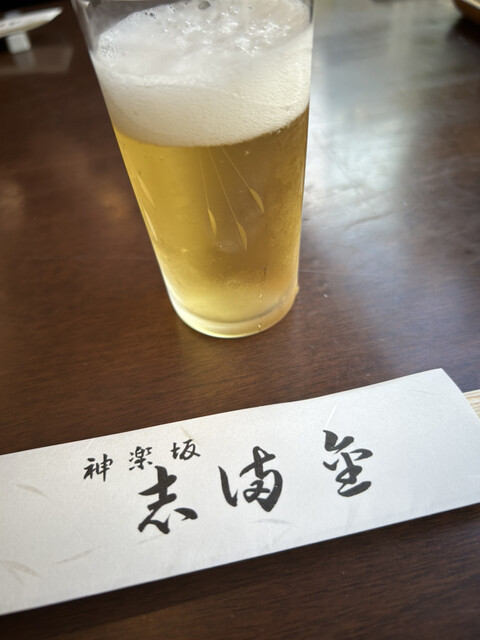 神楽坂
志満金